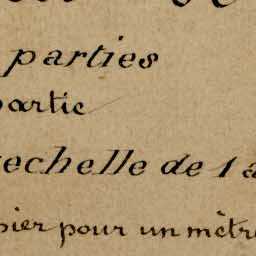 parties
partie
echelle de 1 a
pier pour un mètre